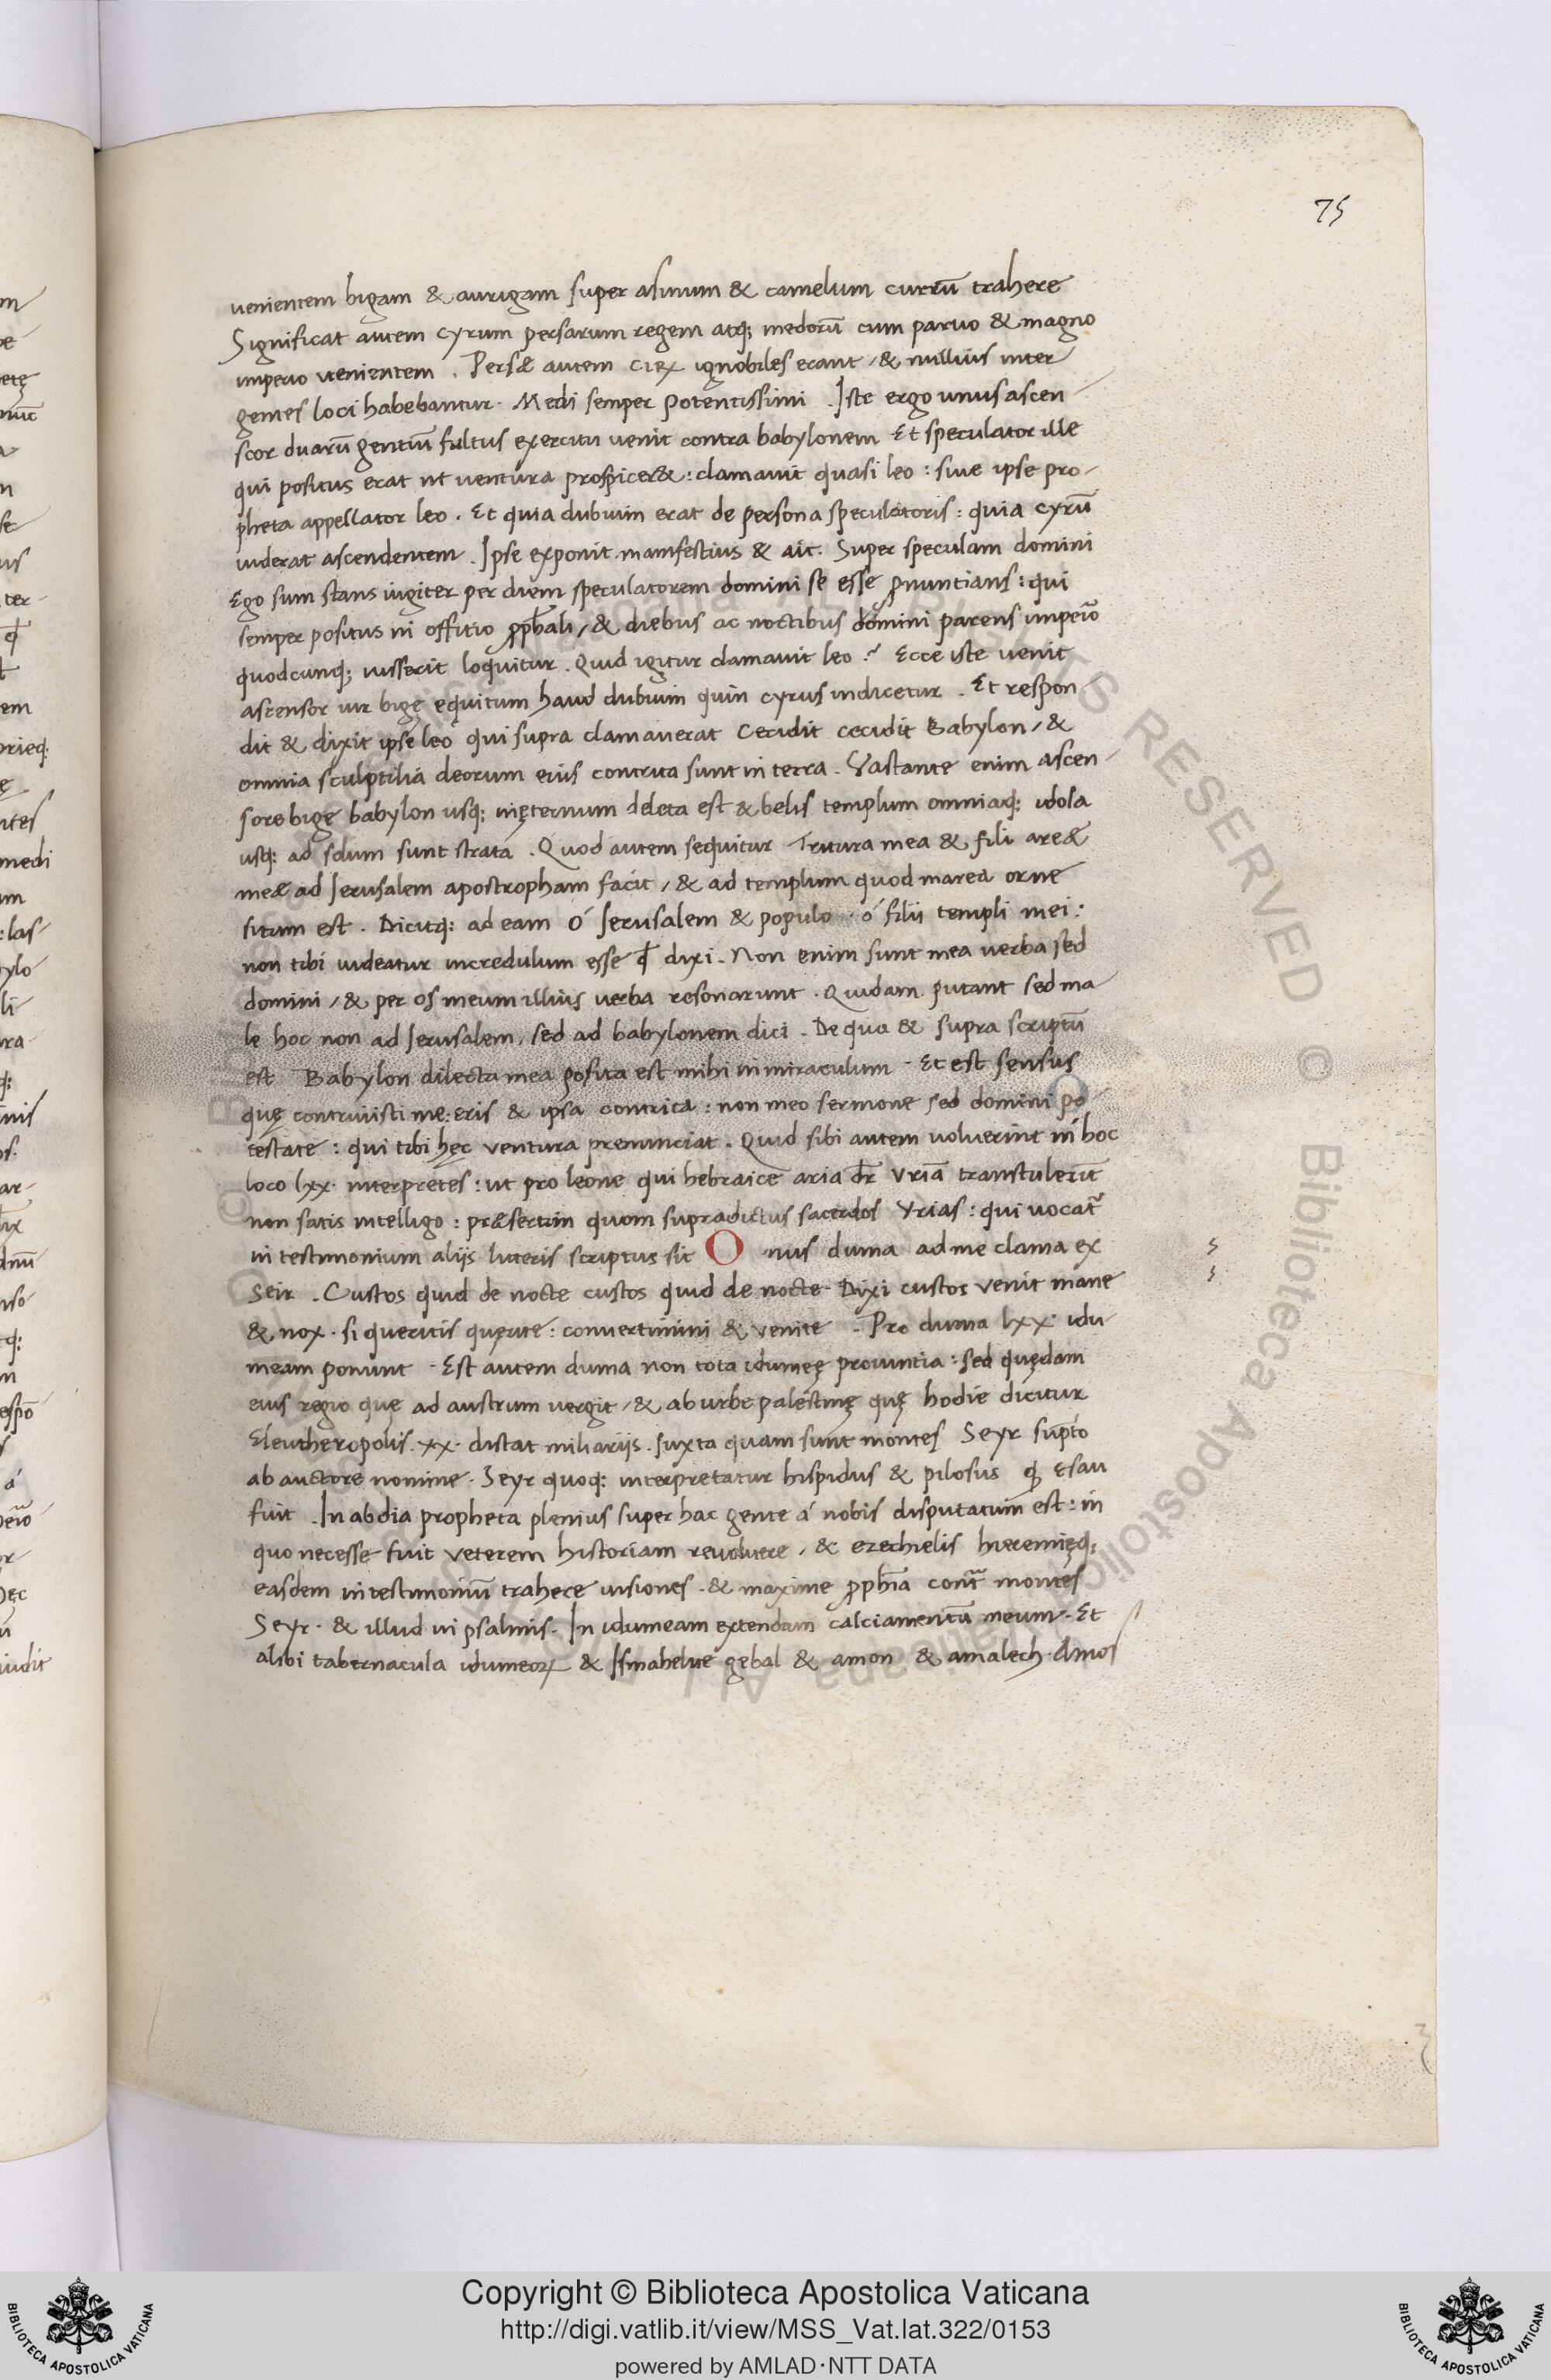 75
uenientem bigam & aurigam super asinum & camelum currū trahere
Significat autem cyrum persarum regem atq; medorū cum paruo & magno
imperio uenientem . Persæ autem ignobiles erant / & nullius inter
gentes loci habebantur . Medi semper potentissimi . Iste ergo unus ascen-
sor duarū gentiū fultus exercitu uenit contra babylonem Et speculator ille
qui positus erat ut uentura prospiceret : clamauit quasi leo : siue ipse pro-
pheta appellator leo . Et quia dubium erat de persona speculatoris : quia cyrū
uiderat ascendentem . Ipse exponit manifestius & ait . Super speculam domini
Ego sum stans iugiter per diem speculatorem domini se esse ꝓnuntians : qui
semper positus in offitio ꝓph̄ali / & diebus ac noctibus domini parens impeīo
quodcunq; iusserit loquitur . Quid igitur clamauit leo ? Ecce iste uenit
ascensor uir bigę equitum haud dubium quin cyrus indicetur . Et respon
dit & dixit ipse leo qui supra clamauerat Cecidit cecidit Babylon / &
omnia sculptilia deorum eius contrita sunt in terra . Vastante enim ascen-
sore bigę babylon usq; inęternum deleta est & belis templum omniaq; idola
usq; ad solum sunt strata . Quod autem sequitur Tritura mea & fili areæ
meæ ad Ierusalem apostropham facit / & ad templum quod in area orne
situm est . Dicitq; ad eam ó Ierusalem & populo ó filii templi mei :
non tibi uideatur incredulum esse ꝙ dixi . Non enim sunt mea uerba sed
domini / & per os meum illius uerba resonarunt . Quidam putant sed ma
le hoc non ad Ierusalem , sed ad babylonem dici . De qua & supra scriptū
est Babylon dilecta mea posita est mihi in miraculum . Et est sensus
quę contriuisti me : eris & ipsa contrita : non meo sermone sed domini po
testate : qui tibi hęc uentura prenunciat . Quid sibi autem uoluerint in hoc
loco lxx . interpretes : ut pro leone qui hebraice aria dr̄ vriā transtulerūt
non satis intelligo : præsertim quom supradictus sacerdos Yrias : qui uocat̄
in testimonium alijs luteris scriptus sit Onus duma ad me clama ex
Seir . Custos quid de nocte custos quid de nocte . Dixi custos venit mane
& nox . si queritis querite : conuertimini & venite . Pro duma lxx idu-
meam ponunt . Est autem duma non tota idumeę prouintia : sed quędam
eius regio quę ad austrum uergit / & ab urbe palestinę quę hodie dicitur
Eleutheropolis . xx . distat miliarijs . Iuxta quam sunt montes Seyr sūpto
ab auctore nomine . Seyr quoq; interpretatur hispidus & pilosus ꝙ Esau
fuit . In abdia propheta plenius super hac gente á nobis disputatum est : in
quo necesse fuit veterem historiam reuoluere , & ezechielis hieremięq;
easdem in testimoniū trahere uisiones . & maxime ꝓph̄ia cont̄ montes
Seyr . & illud in psalmis . In idumeam extendam calciamentū meum . Et
alibi tabernacula idumeoꝝ & Ismahelite gebal & amon & amalech . Amos
© Biblioteca Apostolica Vaticana ALL RIGHTS RESERVED © Biblioteca Apostolica Vaticana
Copyright © Biblioteca Apostolica Vaticana
http://digi.vatlib.it/view/MSS_Vat.lat.322/0153
powered by AMLAD·NTT DATA
BIBLIOTECA APOSTOLICA VATICANA
BIBLIOTECA APOSTOLICA VATICANA